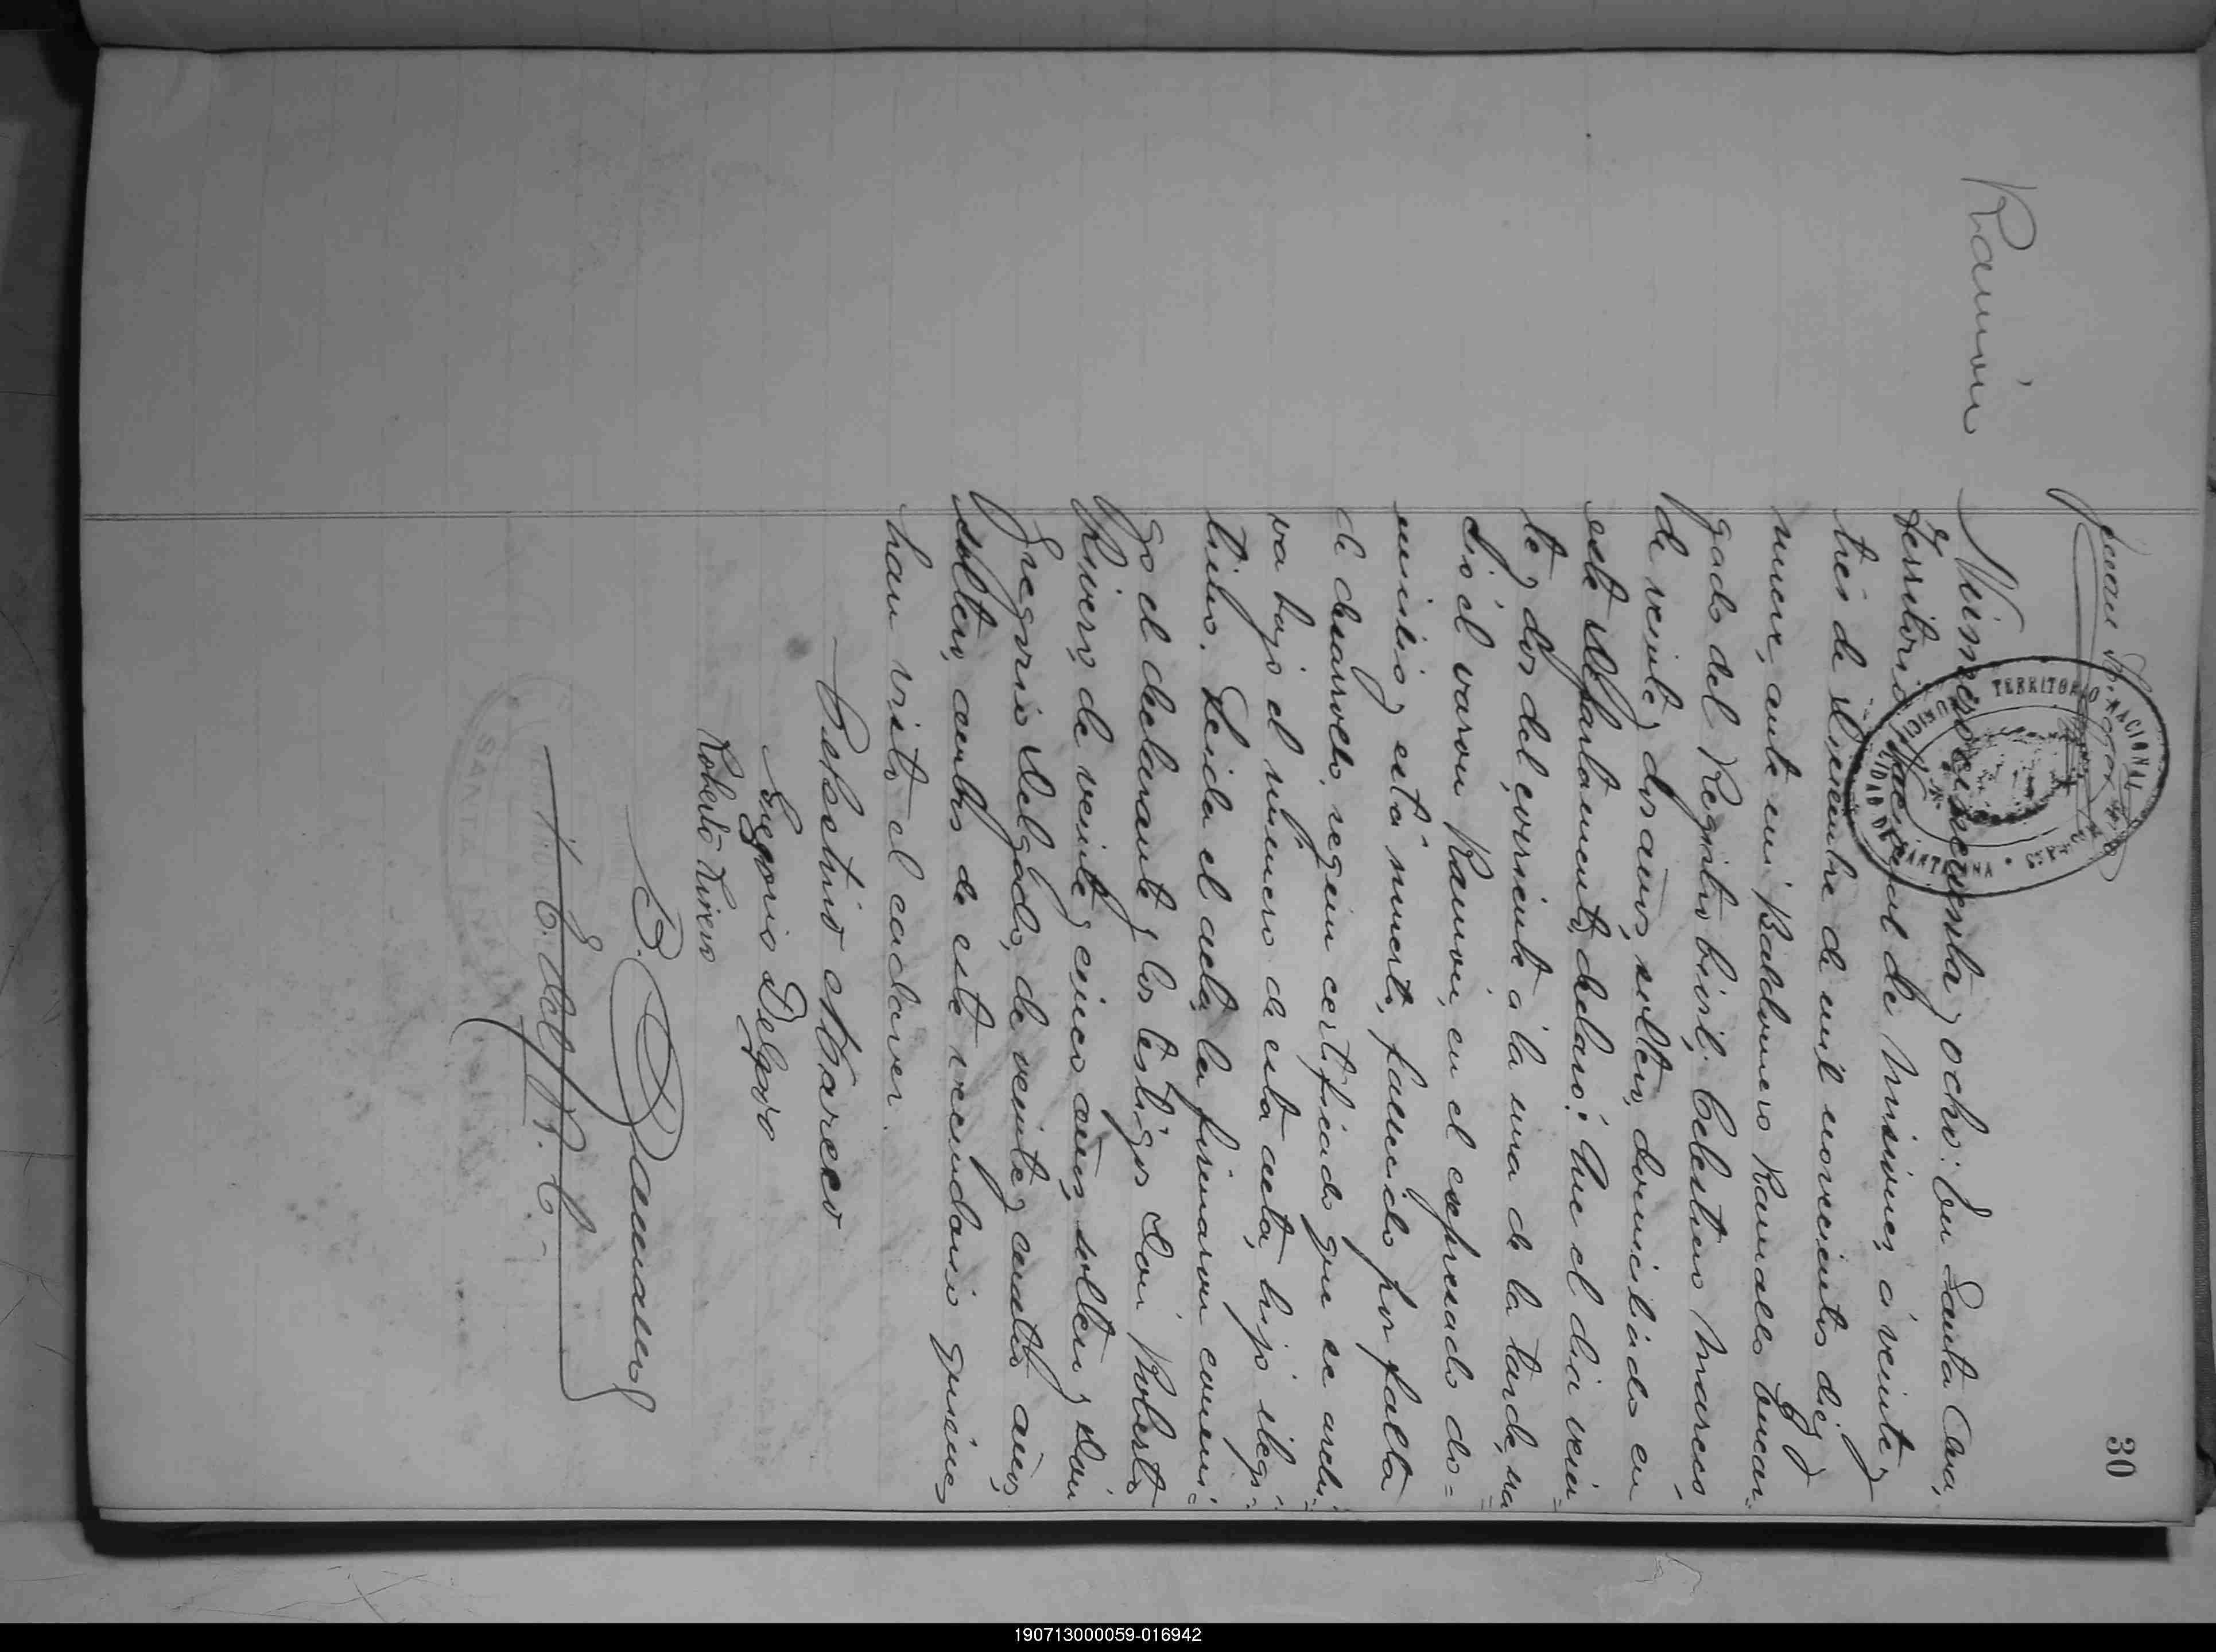 30
Juan
TERRITORIO NACIONAL
DE SANTA ANA
Ramón
Número cincuenta y ocho: En Santa Ana,
Territorio Nacional de Misiones, á veinte y
tres de Diciembre de mil novecientos diez y
nueve, ante mi Baldomero Ramallo Encar-
gado del Registro Civil; Celestino Mareco,
de veinte y dos años, soltero, domiciliado en
este Departamento, declaró: Que el dia vein-
te y dos del corriente á la una de la tarde, na
ció el varon Ramón, en el expresado do-
micilio y está muerto, fallecido por falta
de desarrollo, segun certificado que se archi-
va bajo el número de esta acta, hijo ilegi-
timo. Leida el acta, la firmaron conmi-
go el declarante y los testigos Don Roberto
Rivero, de veinte y cinco años, soltero y Don
Gregorio Delgado, de veinte y cuatro años,
soltero, ambos de este vecindario quienes
han visto el cadaver.
Celestino Mareco
Gregorio Delgado
Roberto Rivero
B. Ramallo
E. del R. C.
190713000059-016942